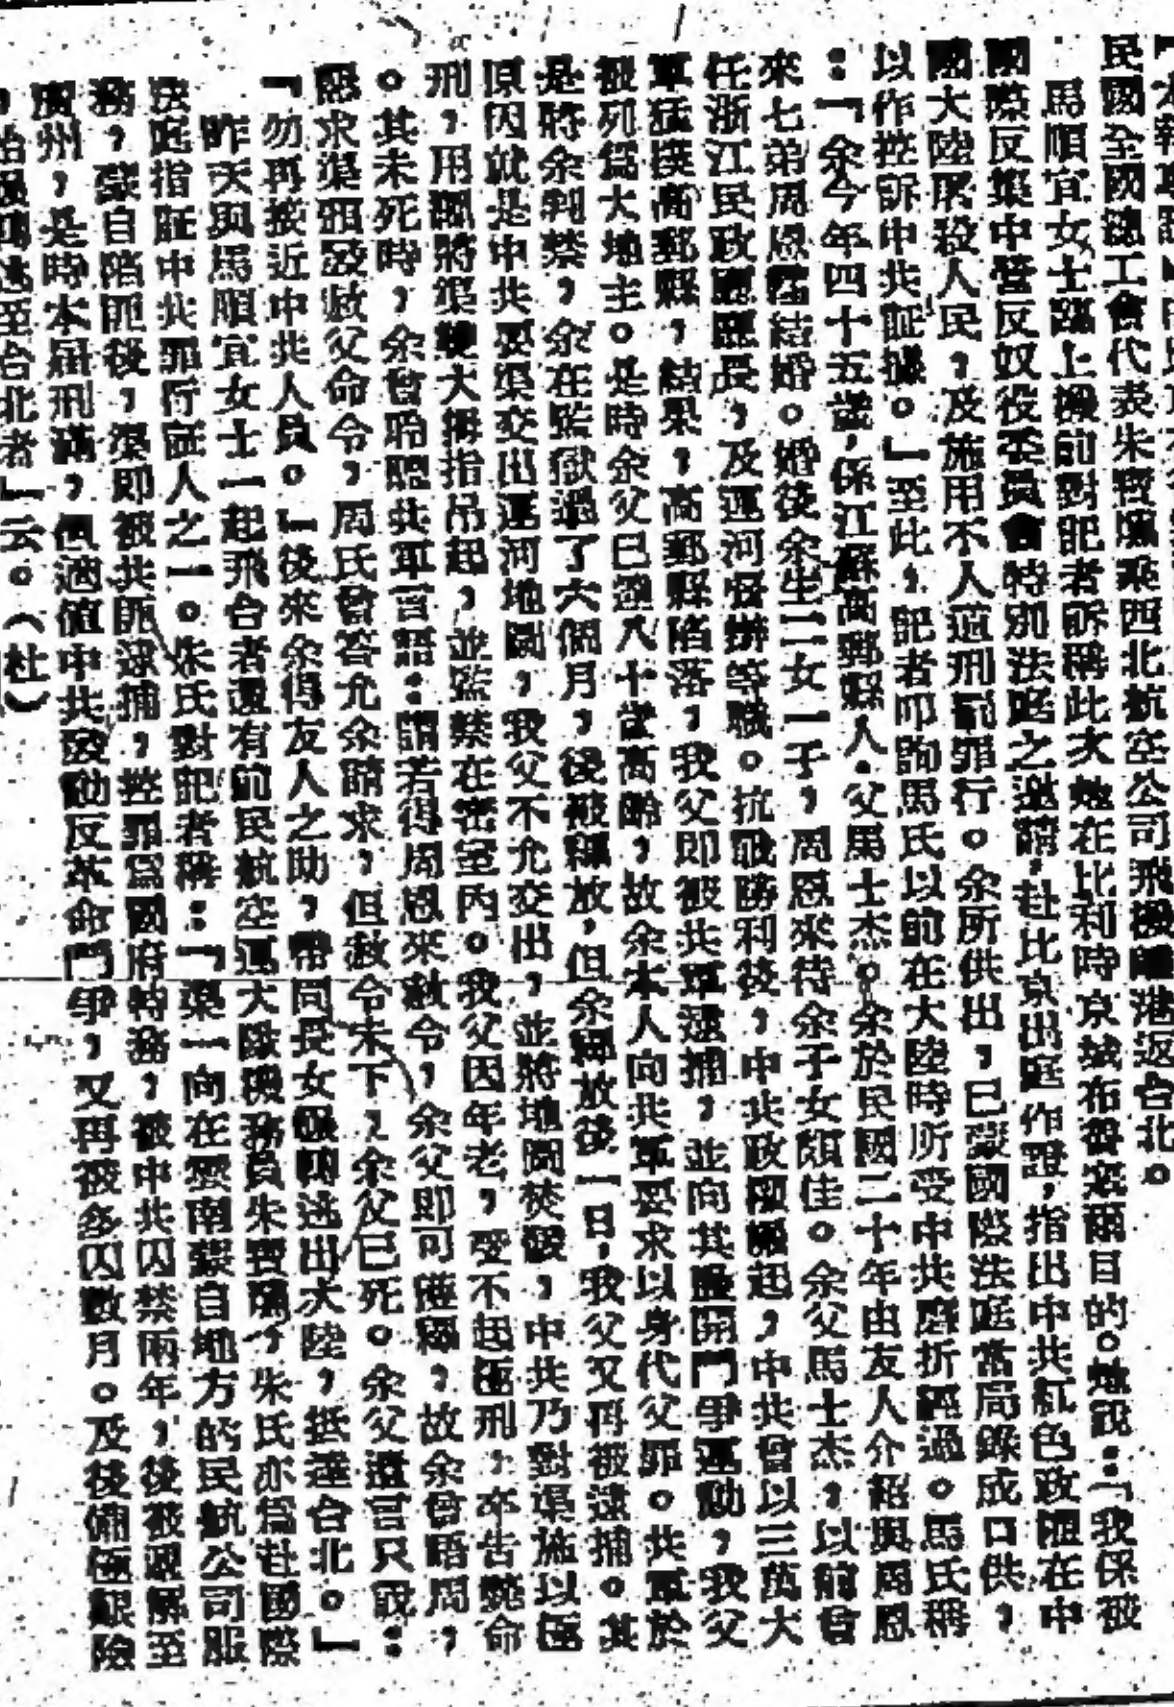 民國全國總工會代表朱寶　乘西北航空公司飛機　港返台北。
馬順宜女士踏上機前對記者訴稱此次她在比利時京城布魯塞爾目的。她說：「我係被
國際反集中營反奴役委員會特別法庭之邀請，赴比京出庭作證，指出中共紅色政權在中
國大陸屠殺人民，及施用不人道刑罰罪行。余所供出，已蒙國際法庭當局錄成口供，
以作控訴中共証據。」至此，記者叩詢馬氏以前在大陸時所受中共磨折經過。馬氏稱
：「余今年四十五歲，係江蘇高郵縣人。父馬士杰。余於民國二十年由友人介紹與周恩
來七弟周恩　結婚。婚後余生二女一子，周恩來待余子女頗佳。余父馬士杰，以前曾
任浙江民政廳廳長，及運河督辦等職。抗戰勝利後，中共政權　起，中共曾以三萬大
軍猛撲高郵縣，結果，高郵縣陷落，我父即被共軍逮捕，並向其　開鬥爭運動，我父
被列爲大地主。是時余父已過八十歲高齡，故余本人向共軍要求以身代父罪。共軍於
是將余判禁，余在監獄過了六個月，後被釋放，但余釋放後一日，我父又再被逮捕。其
原因就是中共要渠交出運河地圖，我父不允交出，並將地圖焚毀，中共乃對渠施以極
刑，用繩將渠雙大拇指吊起，並監禁在密室內。我父因年老，受不起極刑，卒告斃命
。其未死時，余曾聆聽共軍言語：謂若得周恩來赦令，余父即可獲釋，故余曾晤周，
懇求渠頒發赦父命令，周氏曾答允余請求，但赦令未下，余父已死。余父遺言只說：
「勿再接近中共人員。」後來余得友人之助，帶同長女　　逃出大陸，抵達台北。」
昨天與馬順宜女士一起飛台者還有前民航空運大隊機務員朱寶　，朱氏亦爲赴國際
法庭指証中共罪行証人之一。朱氏對記者稱：「渠一向在雲南蒙自地方的民航公司服
務，蒙自陷匪後，渠即被共匪逮捕，控罪爲國府特務，被中共囚禁兩年，後被遞解至
廣州，是時本屆刑滿，但適值中共發動反革命鬥爭，又再被多囚數月。及後備極艱險
，始　　逃至台北者」云。（杜）